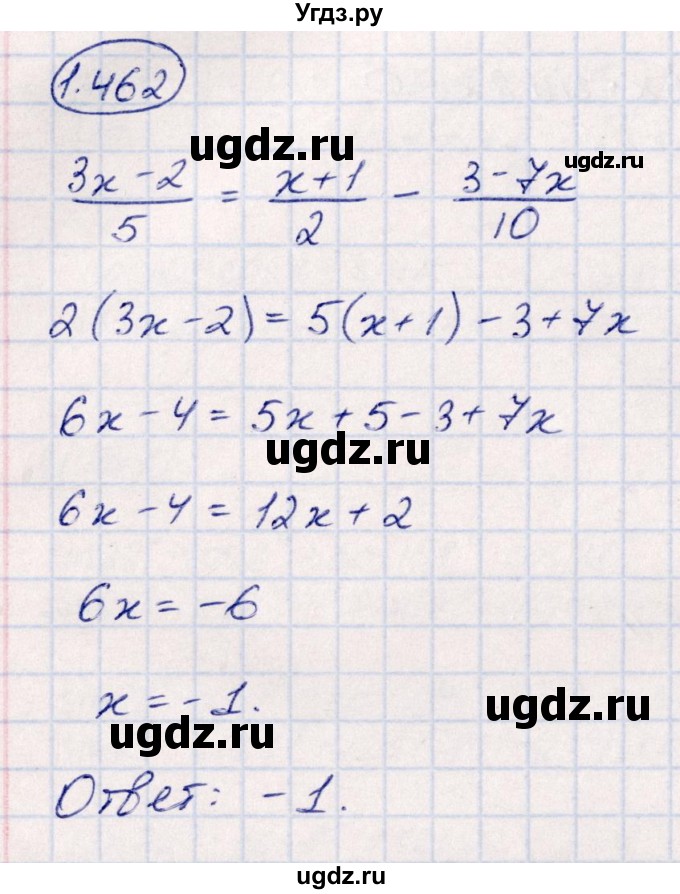 Угдз.ру
1.462
ugdz.ru ugdz.ru
(3x-2)/5 = (x+1)/2 - (3-7x)/10
2(3x-2)=5(x+1)-3+7x
6x-4=5x+5-3+7x
ugdz.ru
6x-4=12x+2
6x=-6
x=-1.
ugdz.ru
ugdz.ru
Ответ: -1.
ugdz.ru